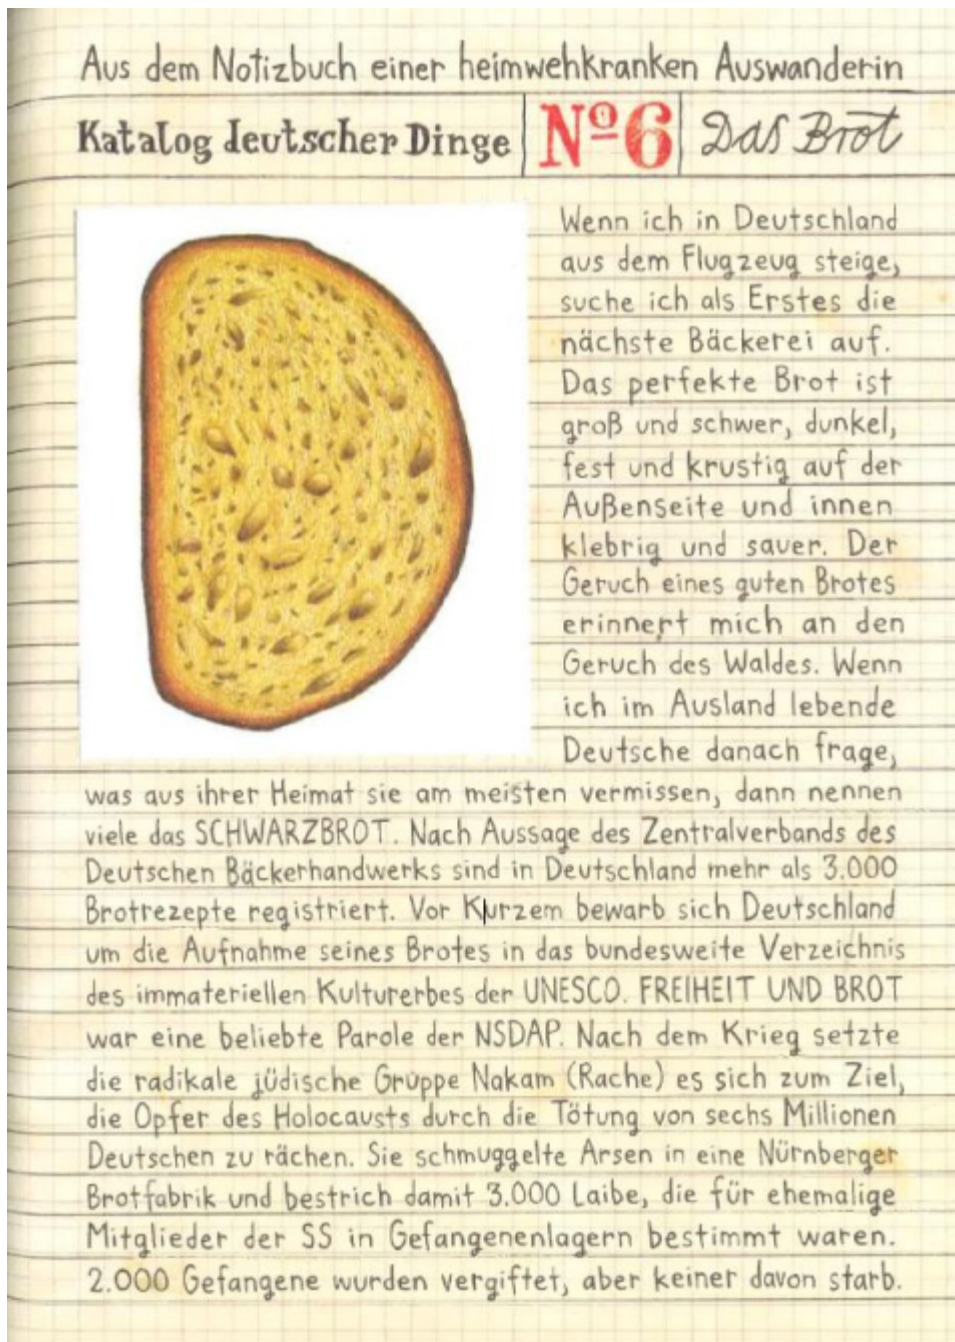 Aus dem Notizbuch einer heimwehkranken Auswanderin
Katalog deutscher Dinge Nº6 Das Brot
Wenn ich in Deutschland
aus dem Flugzeug steige,
suche ich als Erstes die
nächste Bäckerei auf.
Das perfekte Brot ist
groß und schwer, dunkel,
fest und krustig auf der
Außenseite und innen
klebrig und sauer. Der
Geruch eines guten Brotes
erinnert mich an den
Geruch des Waldes. Wenn
ich im Ausland lebende
Deutsche danach frage,
was aus ihrer Heimat sie am meisten vermissen, dann nennen
viele das SCHWARZBROT. Nach Aussage des Zentralverbands des
Deutschen Bäckerhandwerks sind in Deutschland mehr als 3.000
Brotrezepte registriert. Vor Kurzem bewarb sich Deutschland
um die Aufnahme seines Brotes in das bundesweite Verzeichnis
des immateriellen Kulturerbes der UNESCO. FREIHEIT UND BROT
war eine beliebte Parole der NSDAP. Nach dem Krieg setzte
die radikale jüdische Gruppe Nakam (Rache) es sich zum Ziel,
die Opfer des Holocausts durch die Tötung von sechs Millionen
Deutschen zu rächen. Sie schmuggelte Arsen in eine Nürnberger
Brotfabrik und bestrich damit 3.000 Laibe, die für ehemalige
Mitglieder der SS in Gefangenenlagern bestimmt waren.
2.000 Gefangene wurden vergiftet, aber keiner davon starb.